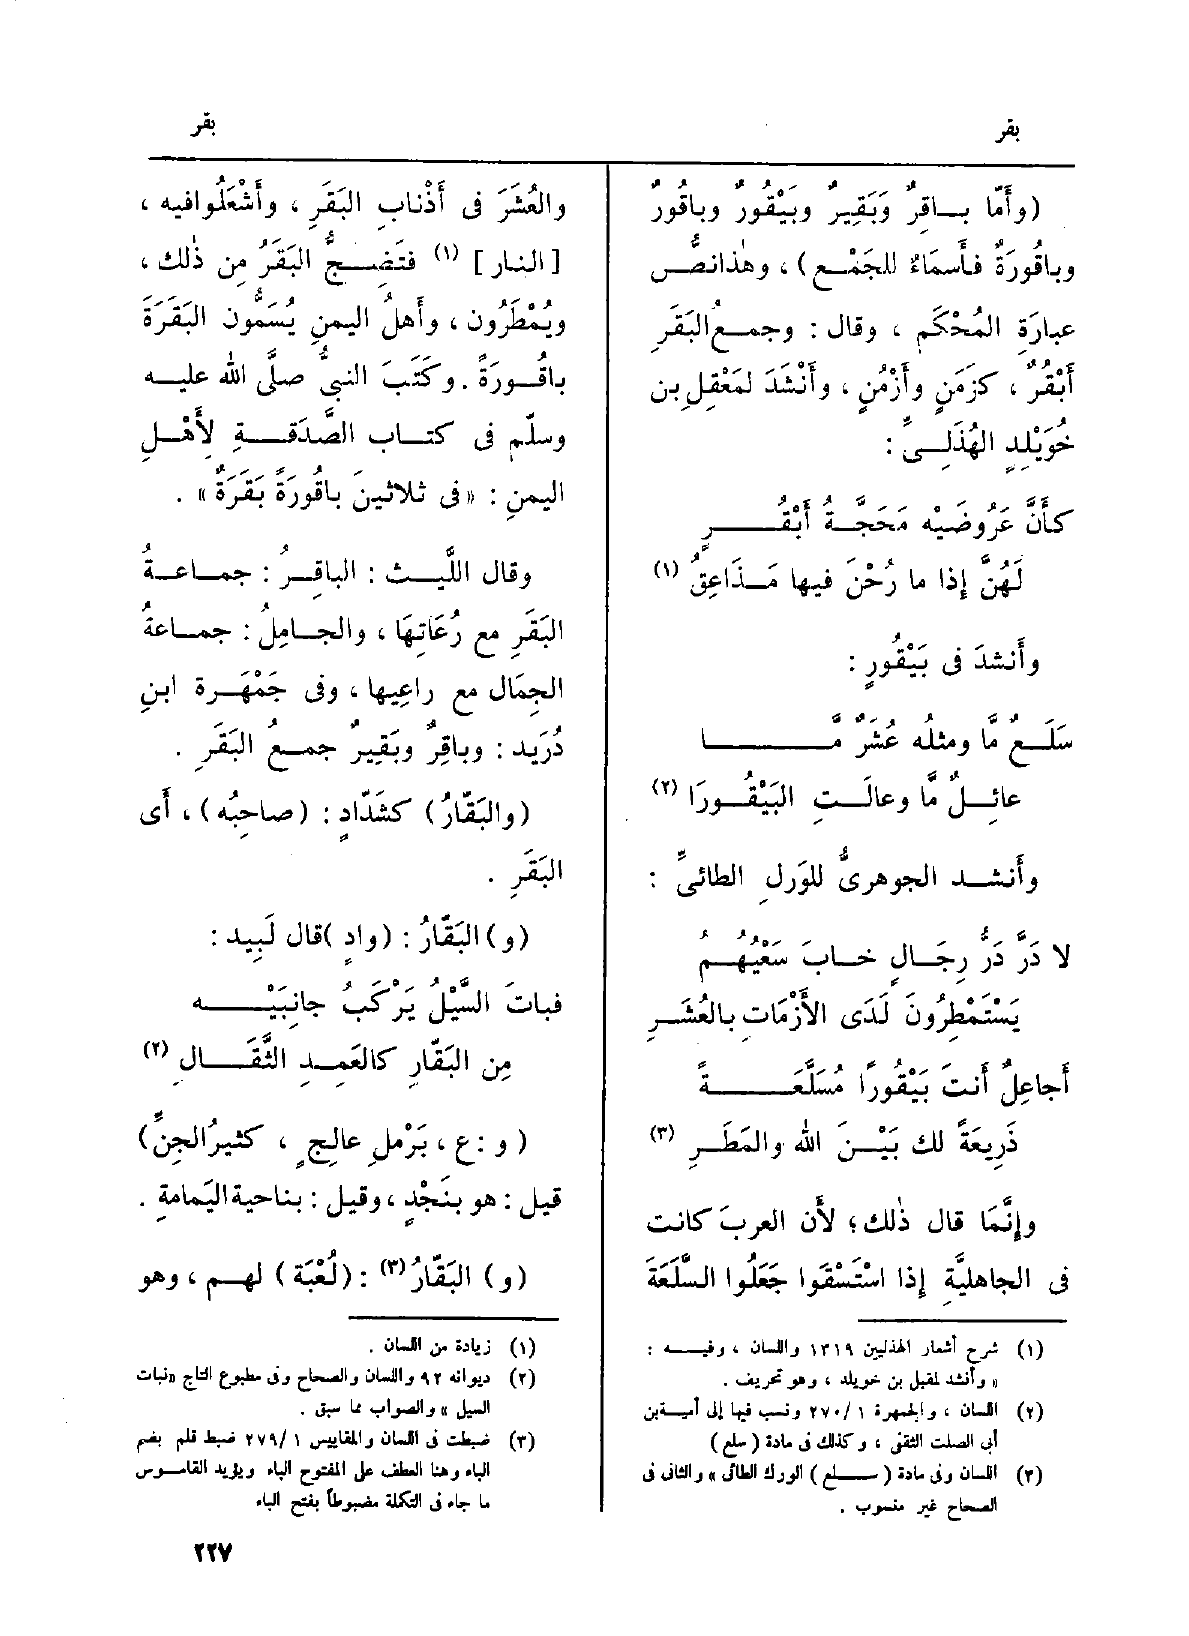 بقر
بقر
(وأَمّا بـاقِرٌ وَبَقِيرٌ وبَيْقُورٌ وباقُورٌ
وباقُورَةٌ فأَسماءٌ للجَمْع) ، وهٰذا نصُّ
عبارَةِ المُحْكَمِ ، وقال : وجمعُ البَقَرِ
أَبْقُرٌ ، كزَمَنٍ وأَزْمُنٍ ، وأَنْشَدَ لمَعْقِلِ بن
خُوَيْلِدٍ الهُذَلِىِّ :
كأَنَّ عَرُوضَيْه مَحَجَّةُ أَبْقُرٍ
لَهُنَّ إِذا ما رُحْنَ فيها مَذَاعِقُ (١)
وأَنشدَ فى بَيْقُورٍ :
سَلَعٌ مَّا ومثلُه عُشَرٌ مَّا
عائِلٌ مَّا وعالَتِ البَيْقُورَا (٢)
وأَنشد الجوهرىُّ للوَرلِ الطائىِّ :
لا دَرَّ دَرُّ رِجَالٍ خابَ سَعْيُهُمُ
يَسْتَمْطِرُونَ لَدَى الأَزْمَاتِ بالعُشَرِ
أَجاعِلٌ أَنتَ بَيْقُورًا مُسَلَّعَةً
ذَرِيعَةً لك بَيْنَ اللهِ والمَطَرِ (٣)
وإِنَّمَا قال ذٰلك ؛ لأَن العربَ كانت
فى الجاهليَّةِ إِذا اسْتَسْقَوا جَعَلُوا السَّلَعَةَ
(١) شرح أشعار الهذليين ١٣١٩ واللسان ، وفيه :
« وأنشد لمقبل بن خويله ، وهو تحريف .
(٢) اللسان ، والجمهرة ١ /٢٧٠ ونسب فيها إلى أمية بن
أبى الصلت الثقفى ، وكذلك فى مادة (سلع)
(٣) اللسان وفى مادة (سلع) الورك الطائى » والثانى فى
الصحاح غير منسوب .
والعُشَرَ فى أَذْنابِ البَقَرِ ، وأَشْعَلُوا فيه ،
[النار] (١) فتَضِجُّ البَقَرُ مِن ذٰلك ،
ويُمْطَرُون ، وأَهلُ اليمنِ يُسَمُّون البَقَرَةَ
باقُورَةً . وكَتَبَ النبىُّ صلَّى اللهُ عليه
وسلّم فى كتاب الصَّدَقةِ لأَهْلِ
اليمنِ : « فى ثلاثينَ باقُورَةً بَقَرَةٌ » .
وقال اللَّيث : الباقِرُ : جماعةُ
البَقَرِ مع رُعَاتِهَا ، والجامِلُ : جماعةُ
الجِمَال مع راعِيها ، وفى جَمْهَرة ابنِ
دُرَيد : وباقِرٌ وبَقِيرٌ جمع البَقَرِ .
(والبَقّارُ) كشَدّادٍ : (صاحِبُه) ، أَى
البَقَرِ .
(و) البَقّارُ : (وادٍ) قال لَبِيد :
فباتَ السَّيْلُ يَرْكَبُ جانِبَيْه
مِن البَقّارِ كالعَمِدِ الثَّقَالِ (٢)
(و : ع ، بَرَمْلِ عالِجٍ ، كثيرُ الجِنِّ)
قيل : هو بنَجْدٍ ، وقيل : بناحية اليَمامةِ .
(و) البَقّارُ (٣) : (لُعْبَة) لهم ، وهو
(١) زيادة من اللسان .
(٢) ديوانه ٩٢ واللسان والصحاح وفى مطبوع التاج «نبات
السيل » والصواب مما سبق .
(٣) ضبطت فى اللسان والمقاييس ١ /٢٧٩ ضبط قلم بضم
الباء وهنا العطف على المفتوح الباء ويؤيد القاموس
ما جاء فى التكملة مضبوطاً بفتح الباء
٢٢٧